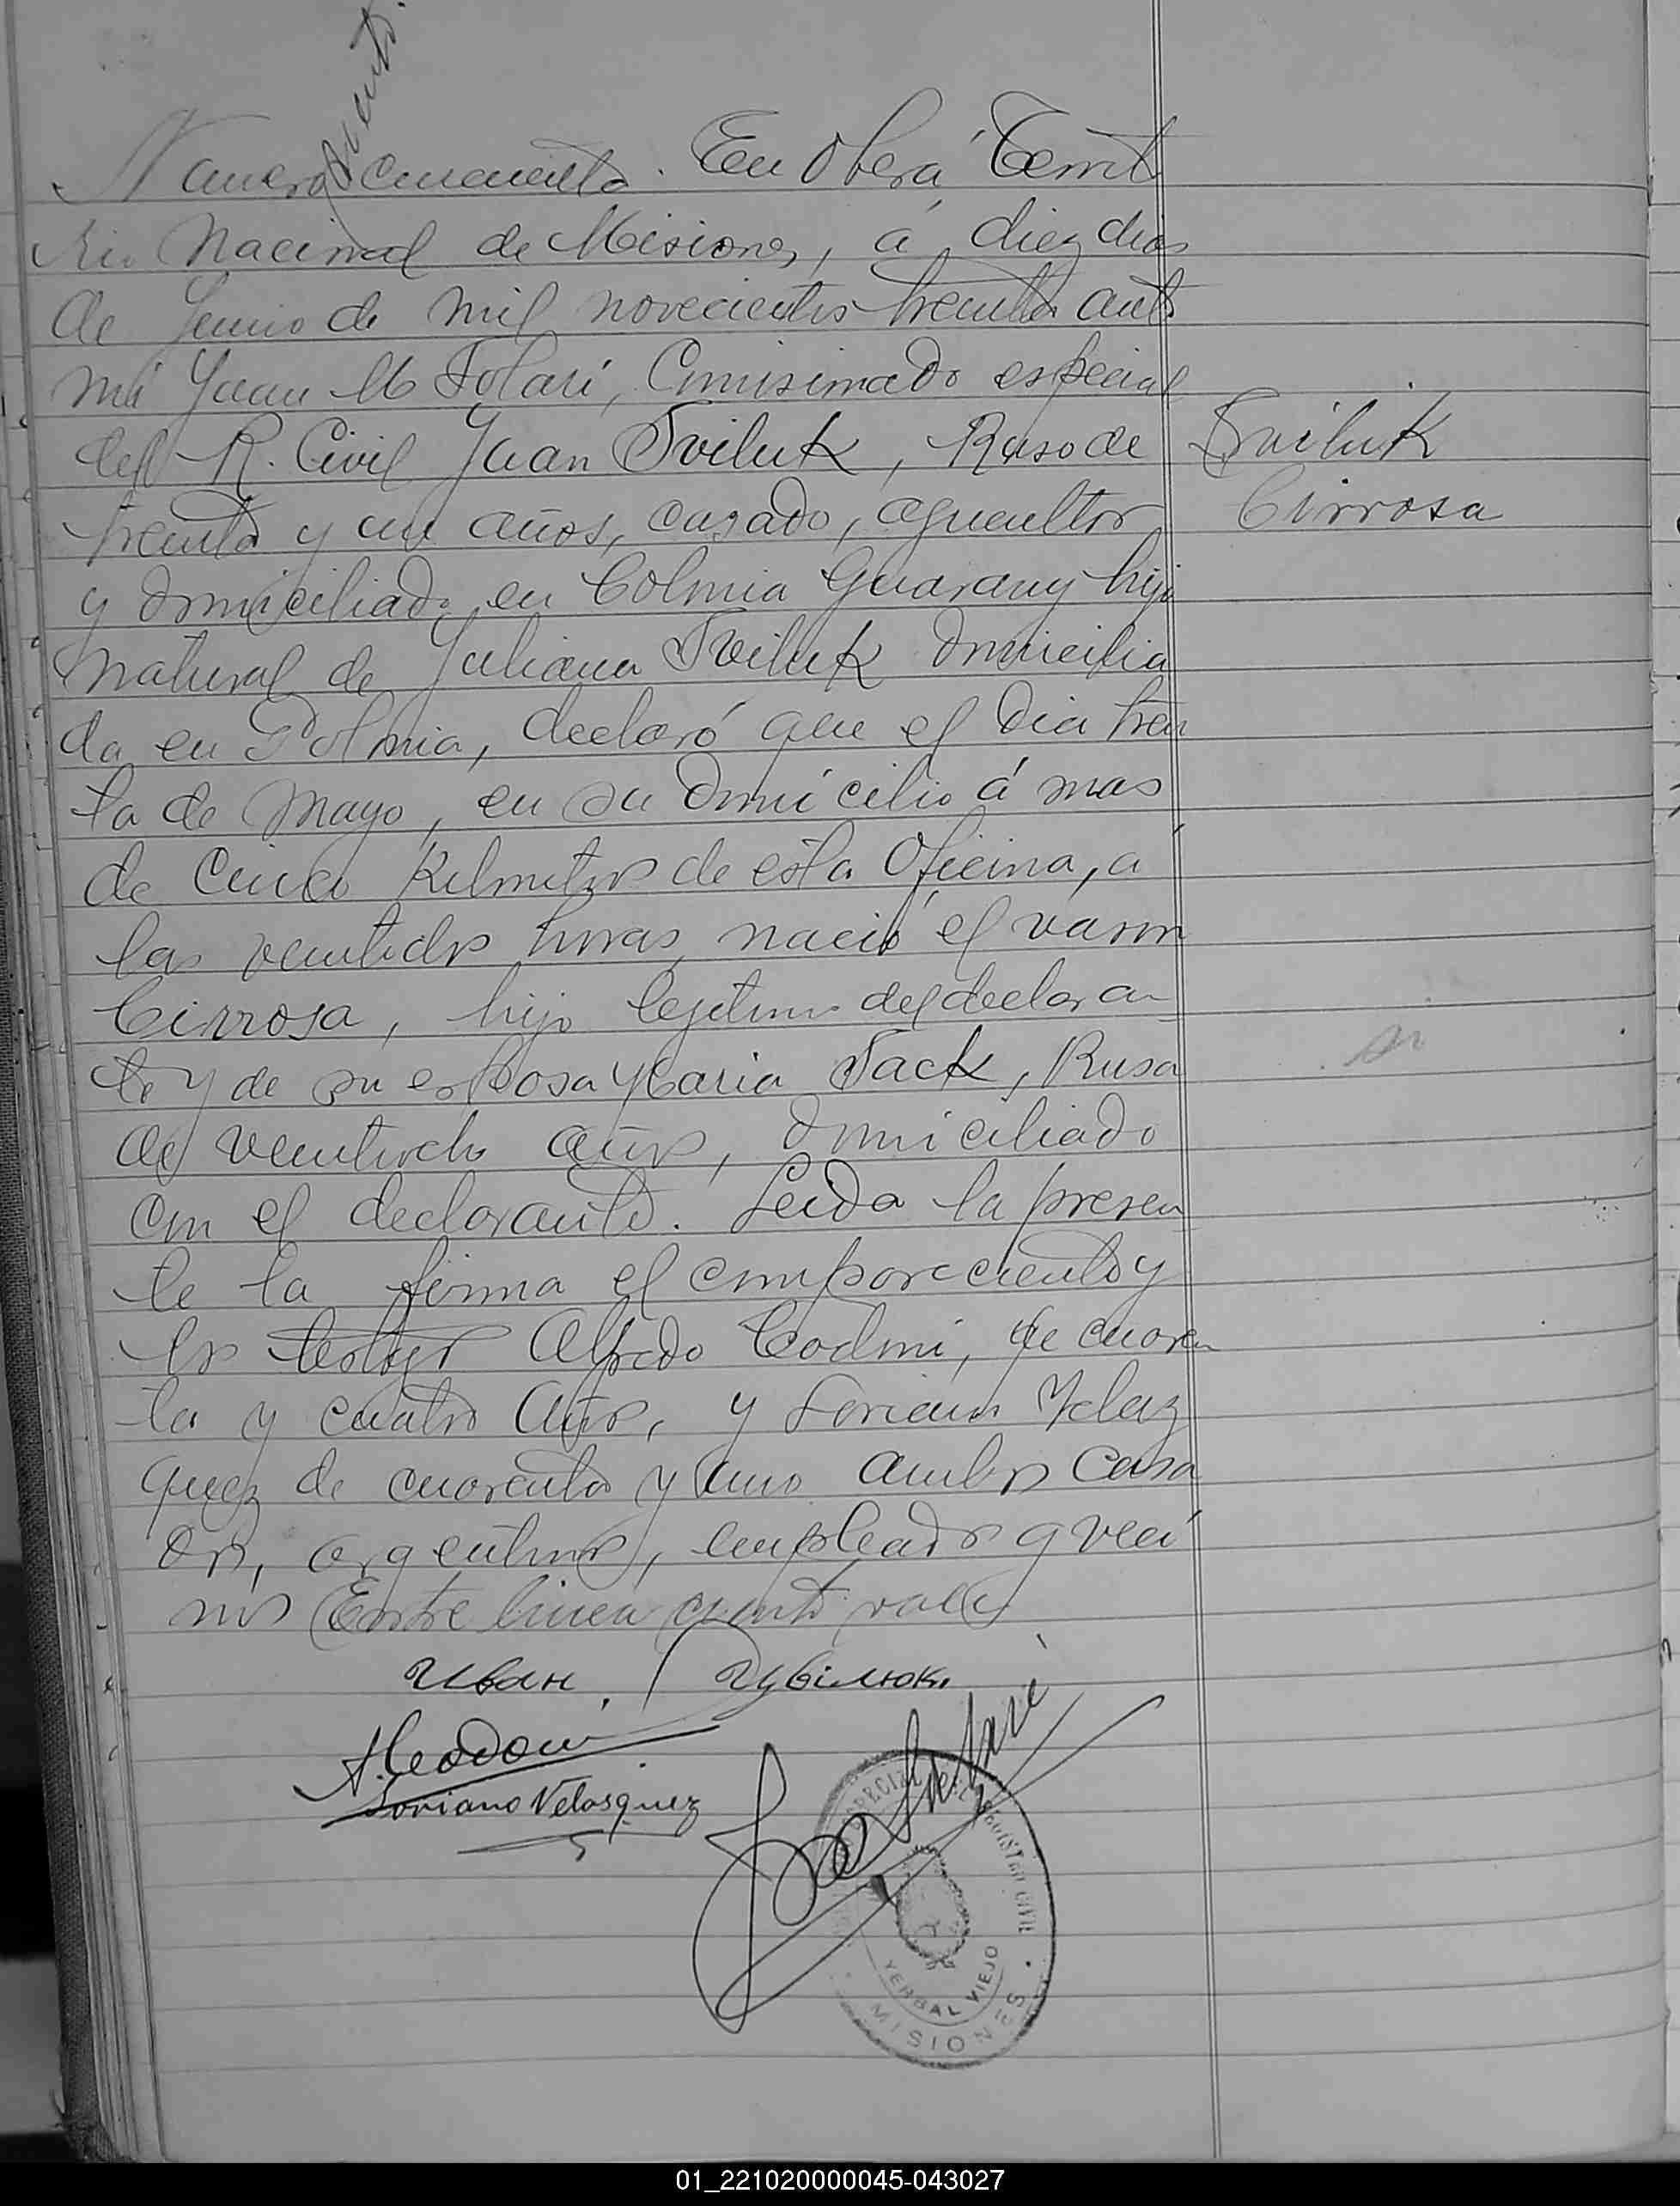 ciento.
Numero cincuenta. En Oberá Territo
rio Nacional de Misiones, á diez dias
de Junio de mil novecientos treinta ante
mi Juan M Solari, Comisionado especial
del R. Civil Juan Sviluk, Ruso de
treinta y un años, casado, agricultor
y domiciliado en Colonia Guarany hijo
natural de Juliana Sviluk domicilia
da en Polonia, declaró que el dia trein
ta de Mayo, en su domicilio á mas
de cinco kilometros de esta Oficina, a
las veintidos horas, nació el varon
Cirrosa, hijo legitimo del declaran
te y de su esposa Maria Sack, Rusa
de veintiocho años, domiciliado
con el declarante. Leida la presen
te la firma el compareciente y
los testigos Alfredo Codoni, de cuaren
ta y cuatro años, y Soriano Velaz
quez de cuarenta y uno ambos casa
dos, argentinos, empleados y veci
nos Entre linea ciento vale
Sviluk
Cirrosa
Иван
A. Codoni
Soriano Velasquez
ESPECIAL DEL REGISTRO CIVIL
YERBAL VIEJO
MISIONES
01_221020000045-043027